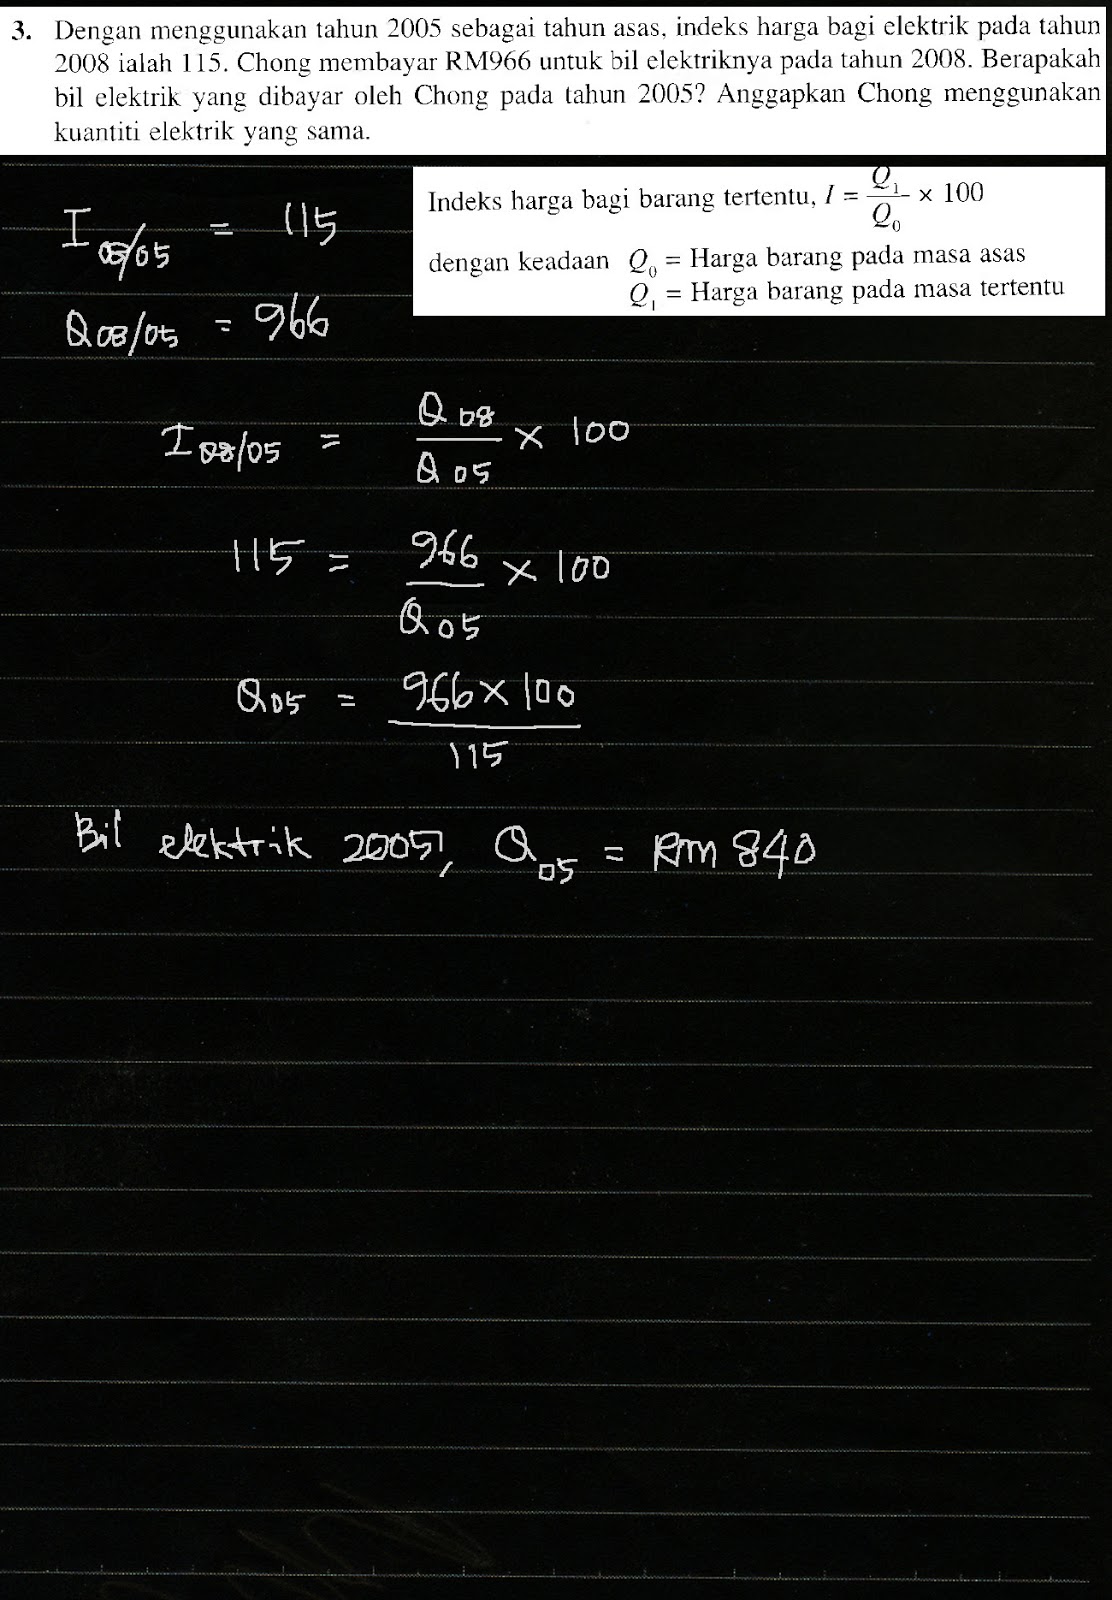 3. Dengan menggunakan tahun 2005 sebagai tahun asas, indeks harga bagi elektrik pada tahun
2008 ialah 115. Chong membayar RM966 untuk bil elektriknya pada tahun 2008. Berapakah
bil elektrik yang dibayar oleh Chong pada tahun 2005? Anggapkan Chong menggunakan
kuantiti elektrik yang sama.
Indeks harga bagi barang tertentu, I = Q₁/Q₀ × 100
dengan keadaan Q₀ = Harga barang pada masa asas
Q₁ = Harga barang pada masa tertentu
I 08/05 = 115
Q 08/05 = 966
I 08/05 = Q 08 / Q 05 × 100
115 = 966 / Q 05 × 100
Q 05 = 966 × 100 / 115
Bil elektrik 2005, Q 05 = Rm 840